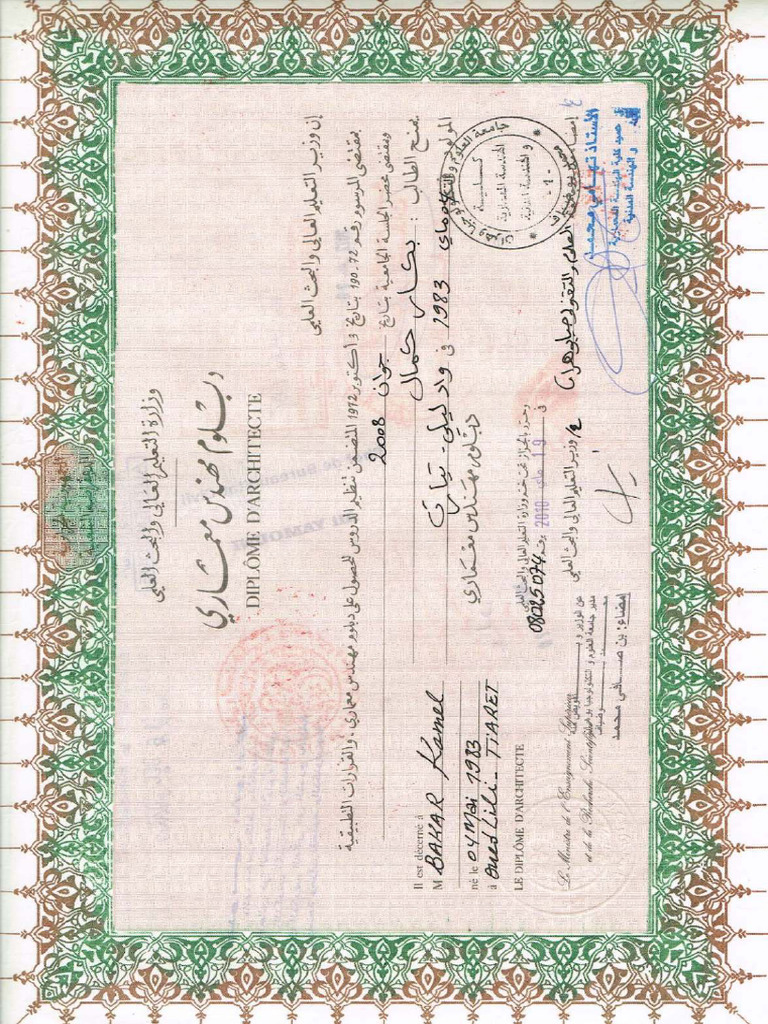 وزارة التعليم العالي والبحث العلمي
دبلوم مهندس معماري
DIPLÔME D'ARCHITECTE
إن وزير التعليم العالي والبحث العلمي
بمقتضى المرسوم رقم 72.190 بتاريخ 3 اكتوبر 1972 المتضمن تنظيم الدروس للحصول على دبلوم مهندس معماري، والقرارات التطبيقية
وبمقتضى محضر الجلسة الجامعية بتاريخ جوان 2008
يمنح الطالب : بكار كمال
المولود 04 ماي 1983 في واد ليلي - تيارت
دبلوم مهندس معماري
Il est décerné à
M BAKAR Kamel
né le 04 Mai 1983
à Oued Lili - TiARET
LE DIPLÔME D'ARCHITECTE
وزارة التعليم العالي والبحث العلمي
08025074
في 19 ماي 2010
وزير التعليم العالي والبحث العلمي
Le Ministre de l'Enseignement Supérieur
et de la Recherche Scientifique
عن الوزير و
مدير جامعة العلوم و التكنولوجيا
إمضاء: بن صافي محمد
جامعة العلوم
كلية
الهندسة المعمارية
و الهندسة المدنية
- 1 -
الأستاذ تهامي محمد